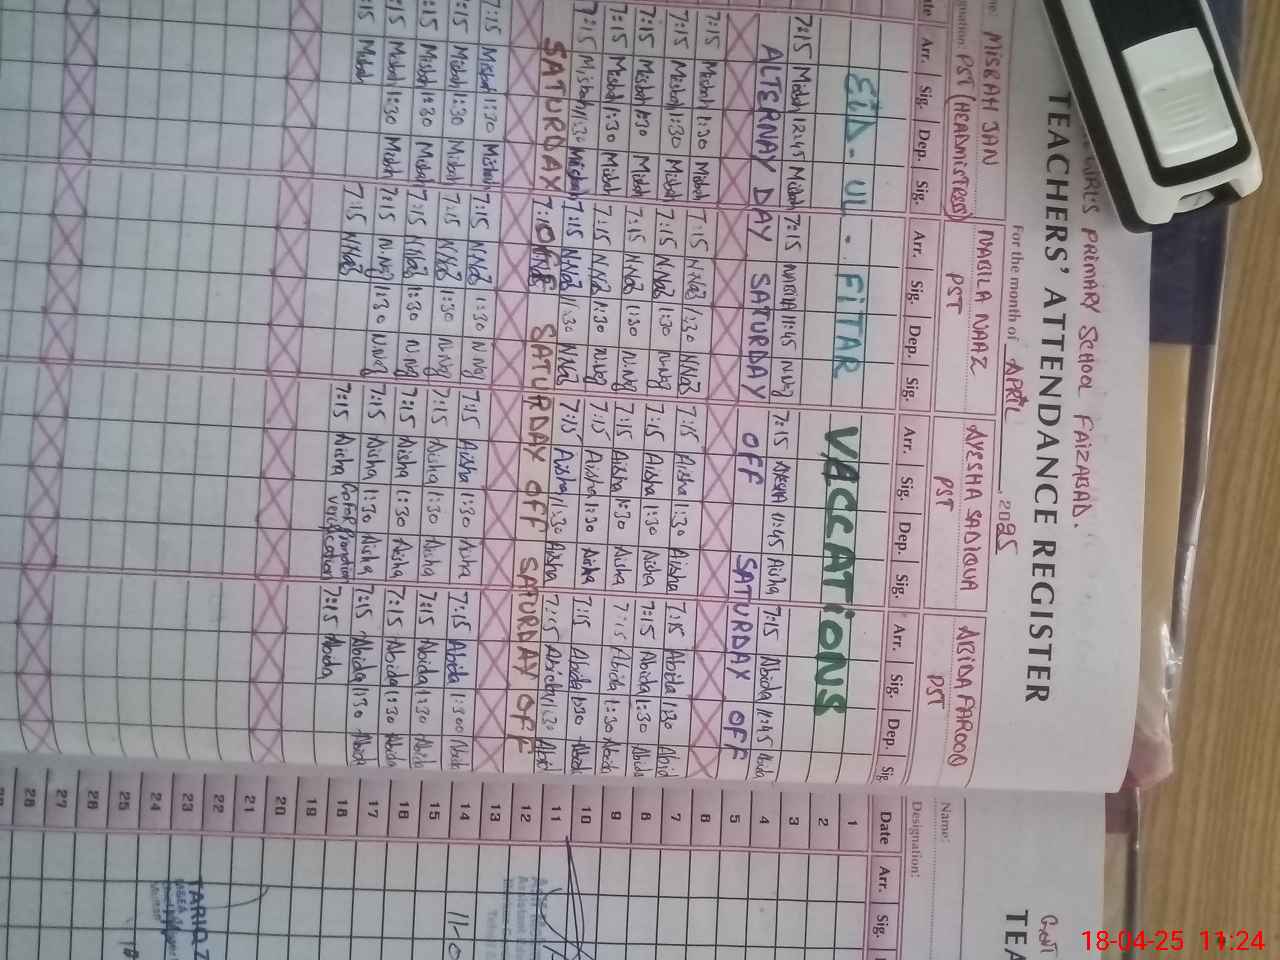 GIRLS PRIMARY SCHOOL FAIZABAD.
TEACHERS' ATTENDANCE REGISTER
For the month of APRIL, 2025
MISBAH JAN NABILA NAAZ AYESHA SADIQUA ABIDA FAROOQ
PST (HEADMISTRESS) PST PST PST
Arr. Sig. Dep. Sig. Arr. Sig. Dep. Sig. Arr. Sig. Dep. Sig. Arr. Sig. Dep. Sig
EID-UL-FITAR VACCATIONS
7:15 Misbah 12:45 Misbah 7:15 NABILA 11:45 N.Naz 7:15 AYESHA 11:45 Aisha 7:15 Abida 11:45 Abida
ALTERNAY DAY SATURDAY OFF SATURDAY OFF
7:15 Misbah 1:30 Misbah 7:15 N.Naz 1:30 N.Naz 7:15 Aisha 1:30 Aisha 7:15 Abida 1:30 Abid
7:15 Misbah 1:30 Misbah 7:15 N.Naz 1:30 N.Naz 7:15 Aisha 1:30 Aisha 7:15 Abida 1:30 Abida
7:15 Misbah 1:30 Misbah 7:15 N.Naz 1:30 N.Naz 7:15 Aisha 1:30 Aisha 7:15 Abida 1:30 Abida
7:15 Misbah 1:30 Misbah 7:15 N.Naz 1:30 N.Naz 7:15 Aisha 1:30 Aisha 7:15 Abida 1:30 Abida
7:15 Misbah 11:30 Misbah 7:15 N.Naz 11:30 N.Naz 7:15 Aisha 11:30 Aisha 7:15 Abida 11:30 Abid
SATURDAY OFF SATURDAY OFF SATURDAY OFF
7:15 Misbah 1:30 Misbah 7:15 N.Naz 1:30 N.Naz 7:15 Aisha 1:30 Aisha 7:15 Abida 1:300 Abida
7:15 Misbah 1:30 Misbah 7:15 N.Naz 1:30 N.Naz 7:15 Aisha 1:30 Aisha 7:15 Abida 1:30 Abida
7:15 Misbah 1:30 Misbah 7:15 N.Naz 1:30 N.Naz 7:15 Aisha 1:30 Aisha 7:15 Abida 1:30 Abida
7:15 Misbah 1:30 Misbah 7:15 N.Naz 1:30 N.Naz 7:15 Aisha 1:30 Aisha 7:15 Abida 1:30 Abida
7:15 Misbah 7:15 N.Naz 7:15 Aisha Go For Promotion verification 7:15 Abida
Name:
Designation:
Date Arr. Sig.
1
2
3
4
5
6
7
8
9
10
11
12
13
14
15
16
17
18
19
20
21
22
23
24
25
26
27
28
TARIQ Z
18-04-25 11:24